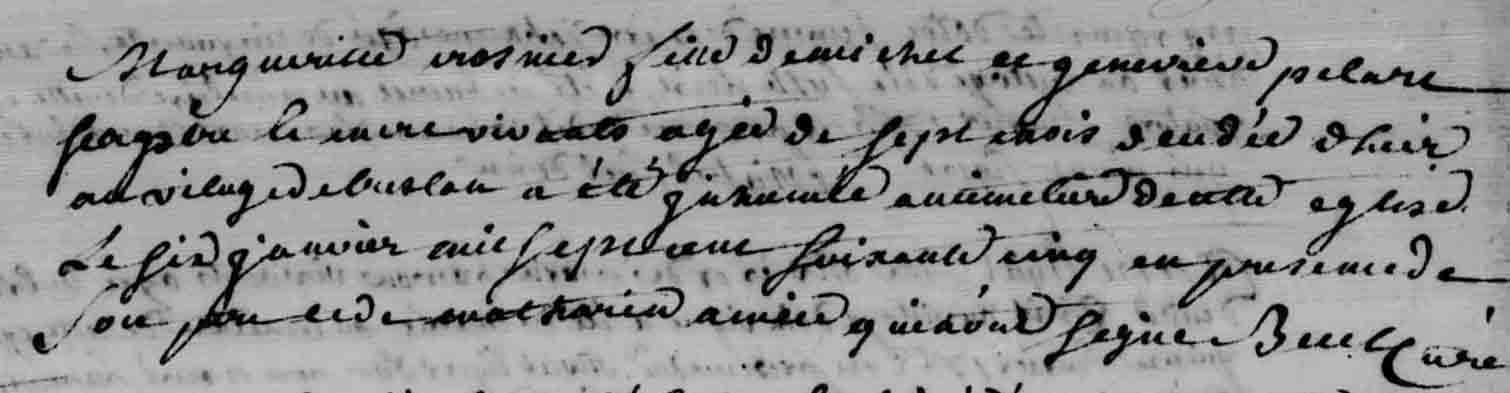 Marguerite rosnier fille de michel et genevieve pelart
ses père et mere vivants agée de sept mois deudée d'hier
au vilage de a été ginhumée au cimetiere de cette eglise
Le six janvier mil sept cent soixante cinq en presence de
Son pere et de mathurin qui n'ont signe Curé